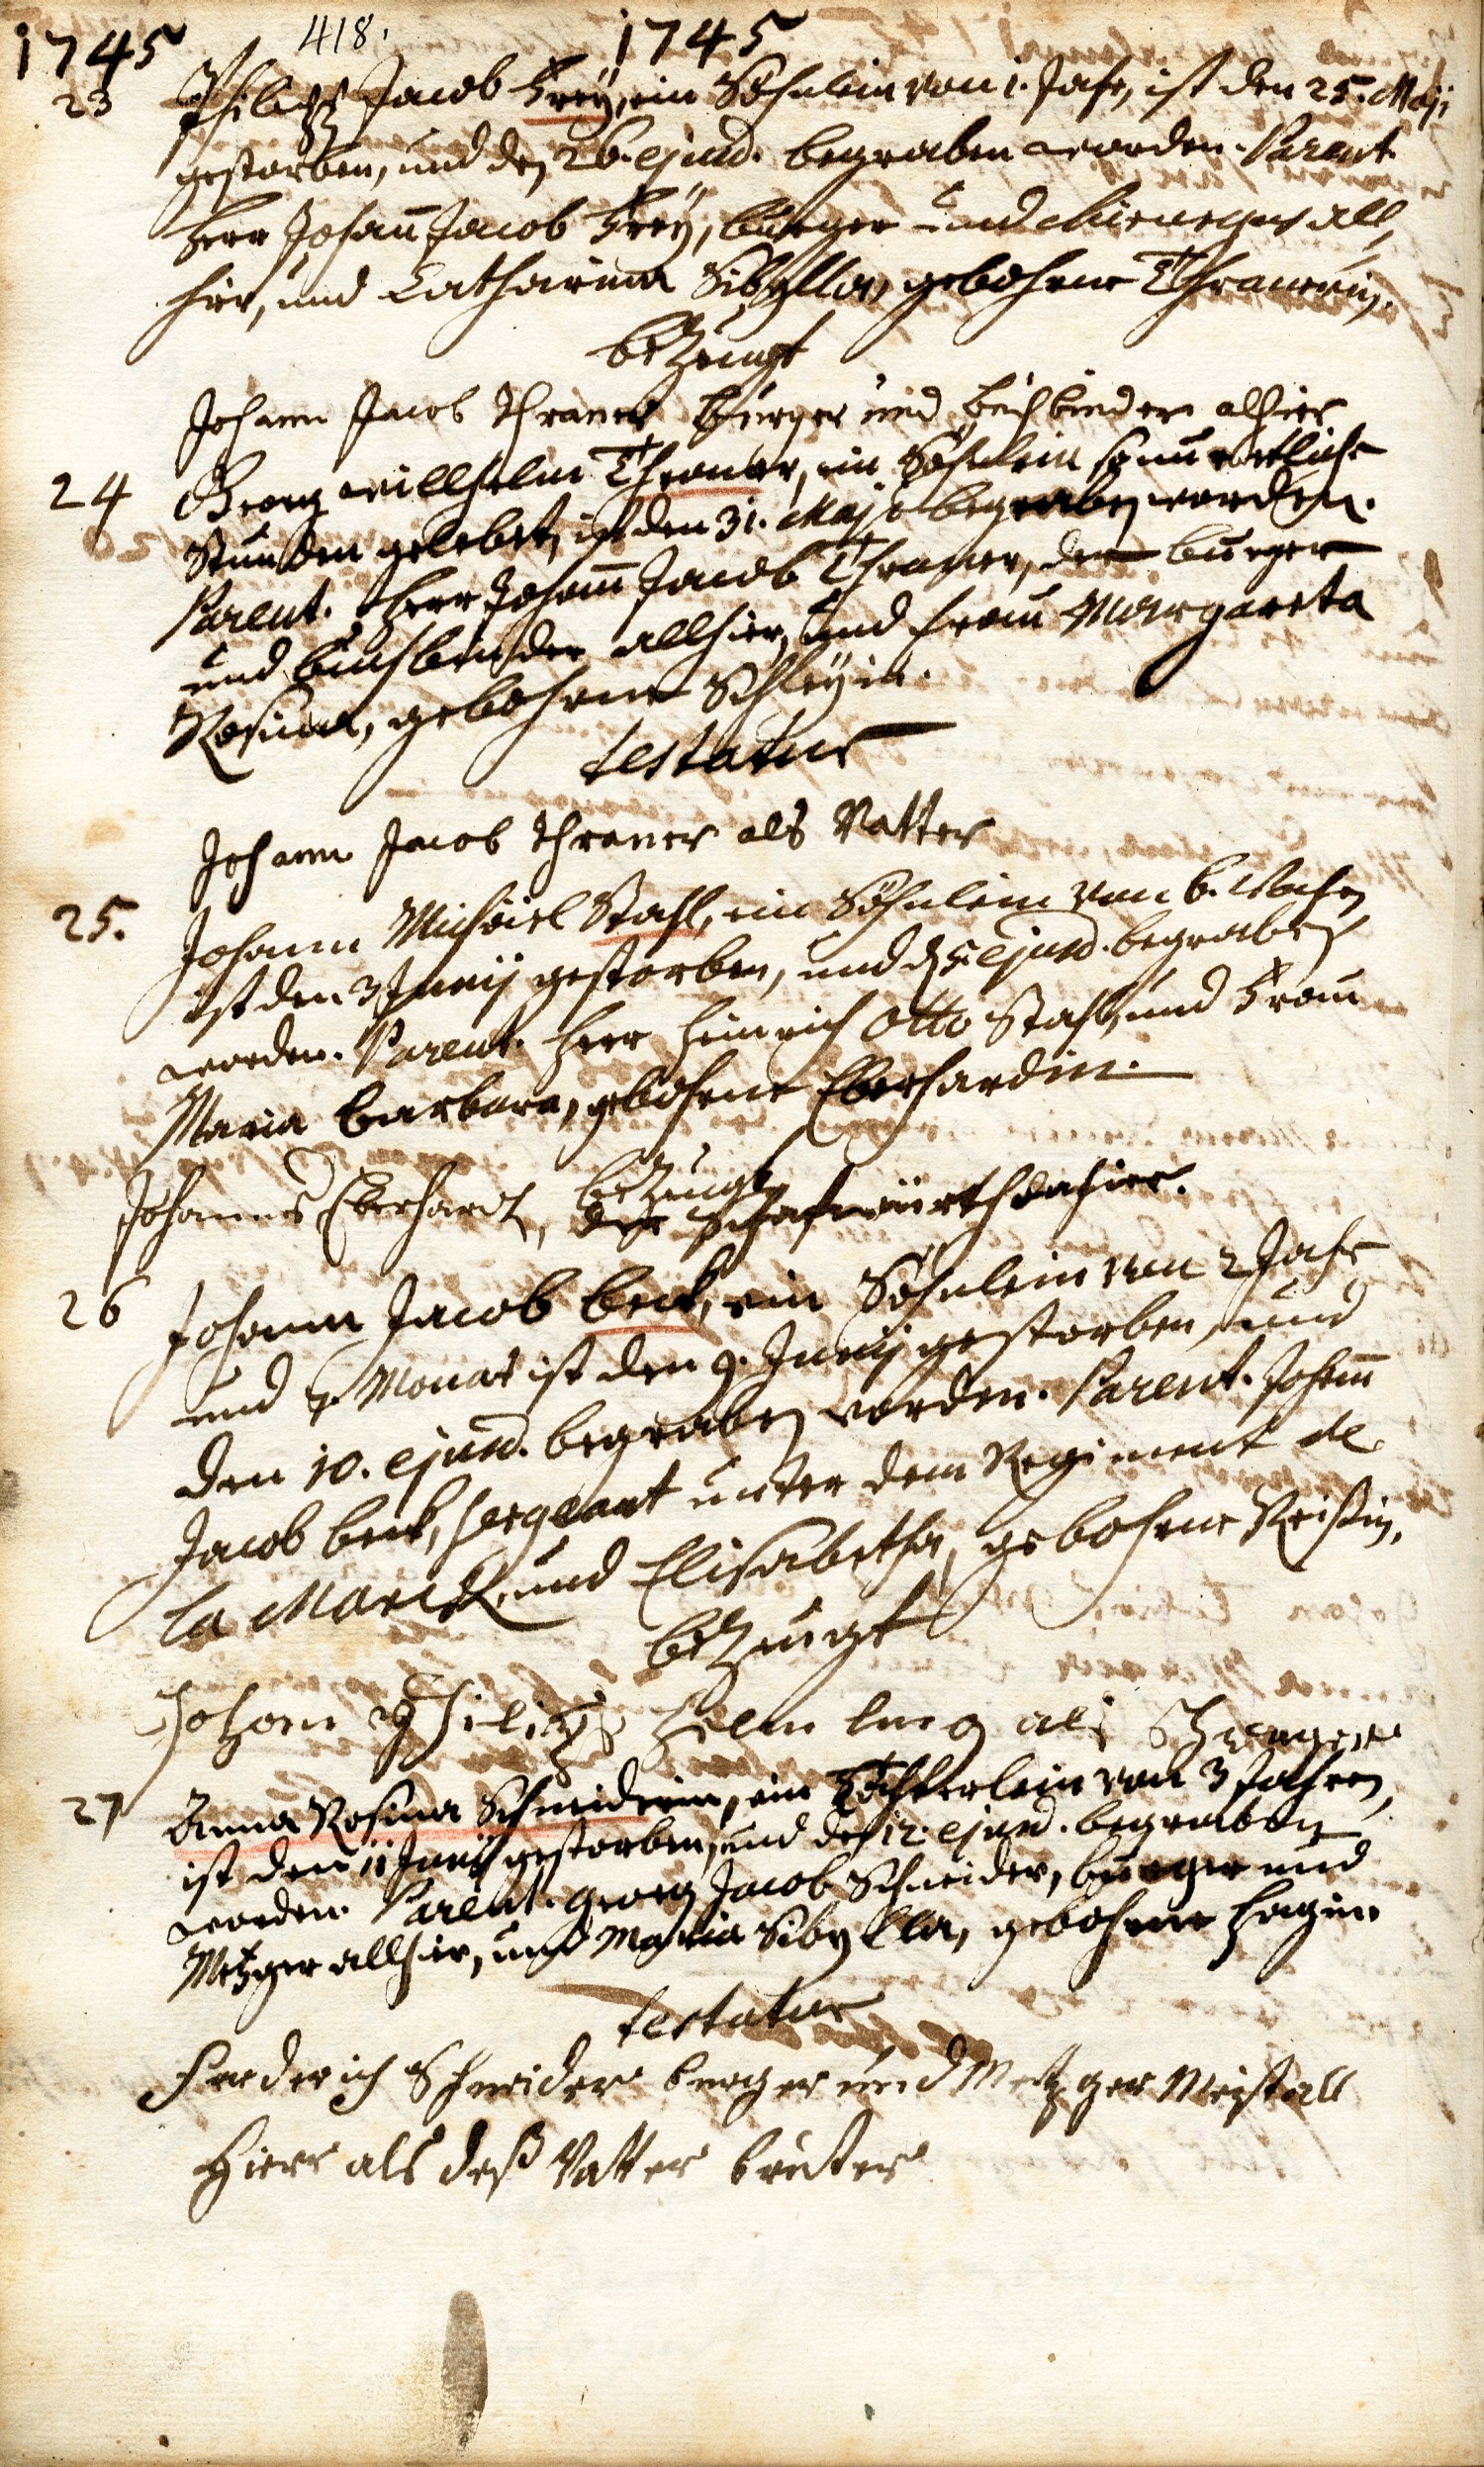 1745 418. 1745
23 Philipp Jacob Frey, ein Söhnlein von 1. Jahr, ist den 25. Maji
gestorben, und den 26. ejusd. begraben worden. Parent.
Herr Johañ Jacob Frey, burger und all,
hier, und Catharina Sibylla, gebohrne Thranerin.
bezeugt
Johann Jacob Thraner burger und buchbinder alhier
24 Georg Willhelm Thraner, ein Söhnlein so nur etliche
Stunden gelebet, ist den 31. Maji begraben worden.
Parent. Herr Johañ Jacob Thraner, der burger
und buchbinder allhier, und Frau Margareta
Rosina, gebohrne Schleyin.
testatur
Johann Jacob Thraner als Vatter
25. Johann Michael Stahl, ein Söhnlein von 6. Wochen
ist den 3 Junij gestorben, und d. 5. ejusd. begraben
worden. Parent. Herr Heinrich Otto Stahl, und Frau
Maria Barbara, gebohrne Eberhardin.
bezeugt
Johannes Eberhardt, der Schafwürth dahier.
26 Johann Jacob Beck, ein Söhnlein von 2 Jahr
und 7. Monat ist den 9. Junij gestorben, und
den 10. ejusd. begraben worden. Parent. Johañ
Jacob Beck, sergeant unter dem Regiment de
la Marck, und Elisabetha, gebohrne Reißin.
bezeugt
Johann Philips als Schwager
27 Anna Rosina Schneiderin, ein Töchterlein von 3 Jahren,
ist den 11 Junij gestorben, und den 12. ejusd. begraben
worden. Parent. Georg Jacob Schneider, burger und
Metzger allhier, und Maria Sibylla, gebohrne Hagin
testatur
Frederich Schneider burger und Metzger Meist all
Hier als deß Vatter bruter